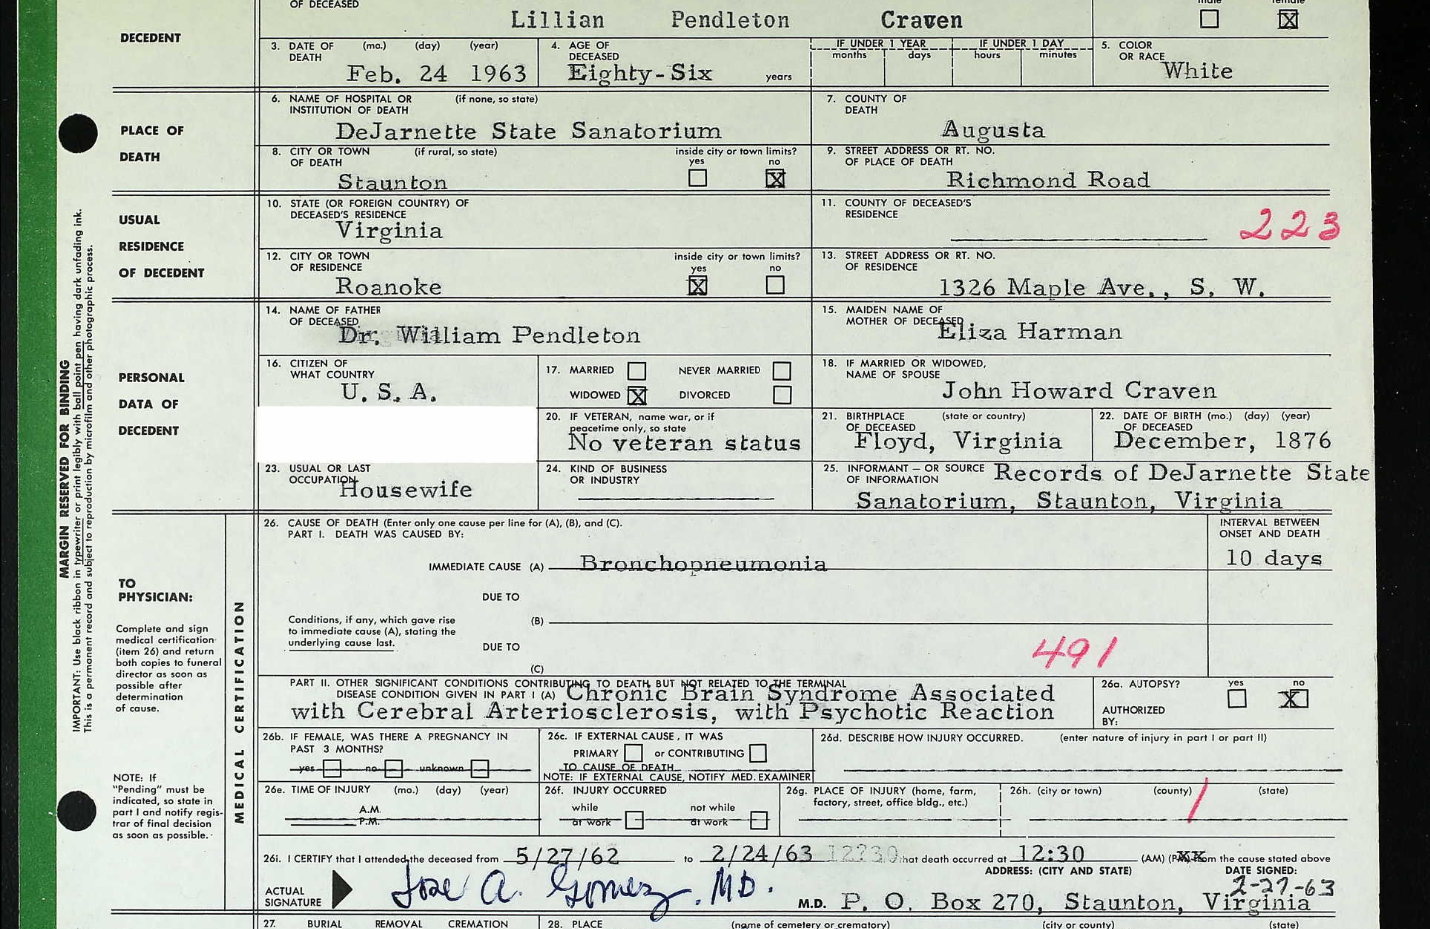 OF DECEASED
Lillian Pendleton Craven
male female
DECEDENT
3. DATE OF DEATH (mo.) (day) (year)
Feb. 24 1963
4. AGE OF DECEASED
Eighty-Six years
IF UNDER 1 YEAR
months days
IF UNDER 1 DAY
hours minutes
5. COLOR OR RACE
White
PLACE OF DEATH
6. NAME OF HOSPITAL OR (if none, so state)
INSTITUTION OF DEATH
DeJarnette State Sanatorium
7. COUNTY OF DEATH
Augusta
8. CITY OR TOWN (if rural, so state)
OF DEATH
Staunton
inside city or town limits?
yes no
9. STREET ADDRESS OR RT. NO.
OF PLACE OF DEATH
Richmond Road
USUAL RESIDENCE OF DECEDENT
10. STATE (OR FOREIGN COUNTRY) OF
DECEASED'S RESIDENCE
Virginia
11. COUNTY OF DECEASED'S
RESIDENCE
223
12. CITY OR TOWN
OF RESIDENCE
Roanoke
inside city or town limits?
yes no
13. STREET ADDRESS OR RT. NO.
OF RESIDENCE
1326 Maple Ave., S. W.
PERSONAL DATA OF DECEDENT
14. NAME OF FATHER
OF DECEASED
Dr. William Pendleton
15. MAIDEN NAME OF
MOTHER OF DECEASED
Eliza Harman
16. CITIZEN OF
WHAT COUNTRY
U. S. A.
17. MARRIED NEVER MARRIED
WIDOWED DIVORCED
18. IF MARRIED OR WIDOWED,
NAME OF SPOUSE
John Howard Craven
20. IF VETERAN, name war, or if
peacetime only, so state
No veteran status
21. BIRTHPLACE (state or country)
OF DECEASED
Floyd, Virginia
22. DATE OF BIRTH (mo.) (day) (year)
OF DECEASED
December, 1876
23. USUAL OR LAST
OCCUPATION
Housewife
24. KIND OF BUSINESS
OR INDUSTRY
25. INFORMANT — OR SOURCE
OF INFORMATION
Records of DeJarnette State
Sanatorium, Staunton, Virginia
MARGIN RESERVED FOR BINDING
IMPORTANT: Use black ribbon in typewriter or print legibly with ball point pen having dark unfading ink.
This is a permanent record and subject to reproduction by microfilm and other photographic process.
TO
PHYSICIAN:
Complete and sign
medical certification
(item 26) and return
both copies to funeral
director as soon as
possible after
determination
of cause.
NOTE: If
"Pending" must be
indicated, so state in
part I and notify regis-
trar of final decision
as soon as possible.
MEDICAL CERTIFICATION
26. CAUSE OF DEATH (Enter only one cause per line for (A), (B), and (C).
PART I. DEATH WAS CAUSED BY:
INTERVAL BETWEEN
ONSET AND DEATH
IMMEDIATE CAUSE (A) Bronchopneumonia
10 days
DUE TO
Conditions, if any, which gave rise
to immediate cause (A), stating the
underlying cause last.
(B)
DUE TO
491
(C)
PART II. OTHER SIGNIFICANT CONDITIONS CONTRIBUTING TO DEATH BUT NOT RELATED TO THE TERMINAL
DISEASE CONDITION GIVEN IN PART I (A) Chronic Brain Syndrome Associated
with Cerebral Arteriosclerosis, with Psychotic Reaction
26a. AUTOPSY? yes no
AUTHORIZED
BY:
26b. IF FEMALE, WAS THERE A PREGNANCY IN
PAST 3 MONTHS?
yes no unknown
26c. IF EXTERNAL CAUSE, IT WAS
PRIMARY or CONTRIBUTING
TO CAUSE OF DEATH
NOTE: IF EXTERNAL CAUSE, NOTIFY MED. EXAMINER
26d. DESCRIBE HOW INJURY OCCURRED. (enter nature of injury in part I or part II)
26e. TIME OF INJURY (mo.) (day) (year)
A.M.
P.M.
26f. INJURY OCCURRED
while at work not while at work
26g. PLACE OF INJURY (home, farm,
factory, street, office bldg., etc.)
26h. (city or town) (county) (state)
26i. I CERTIFY that I attended the deceased from 5/27/62 to 2/24/63 that death occurred at 12:30 (AM) (PM) from the cause stated above
ACTUAL
SIGNATURE
Jose A. Gomez, MD.
M.D.
ADDRESS: (CITY AND STATE)
P. O. Box 270, Staunton, Virginia
DATE SIGNED:
2-27-63
27. BURIAL REMOVAL CREMATION
28. PLACE (name of cemetery or crematory) (city or county) (state)